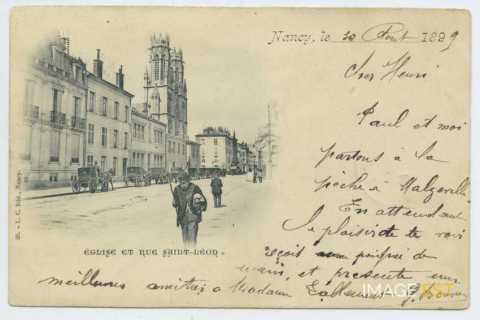 Nancy, le 20 Août 1899
Cher Henri
Paul et moi
partons à la
pêche à Malzéville
En attendant
le plaisir de te voir
reçois une poignée de
mains, et présente mes
meilleures amitiés à Madame
EGLISE ET RUE SAINT-LÉON
IMAGE